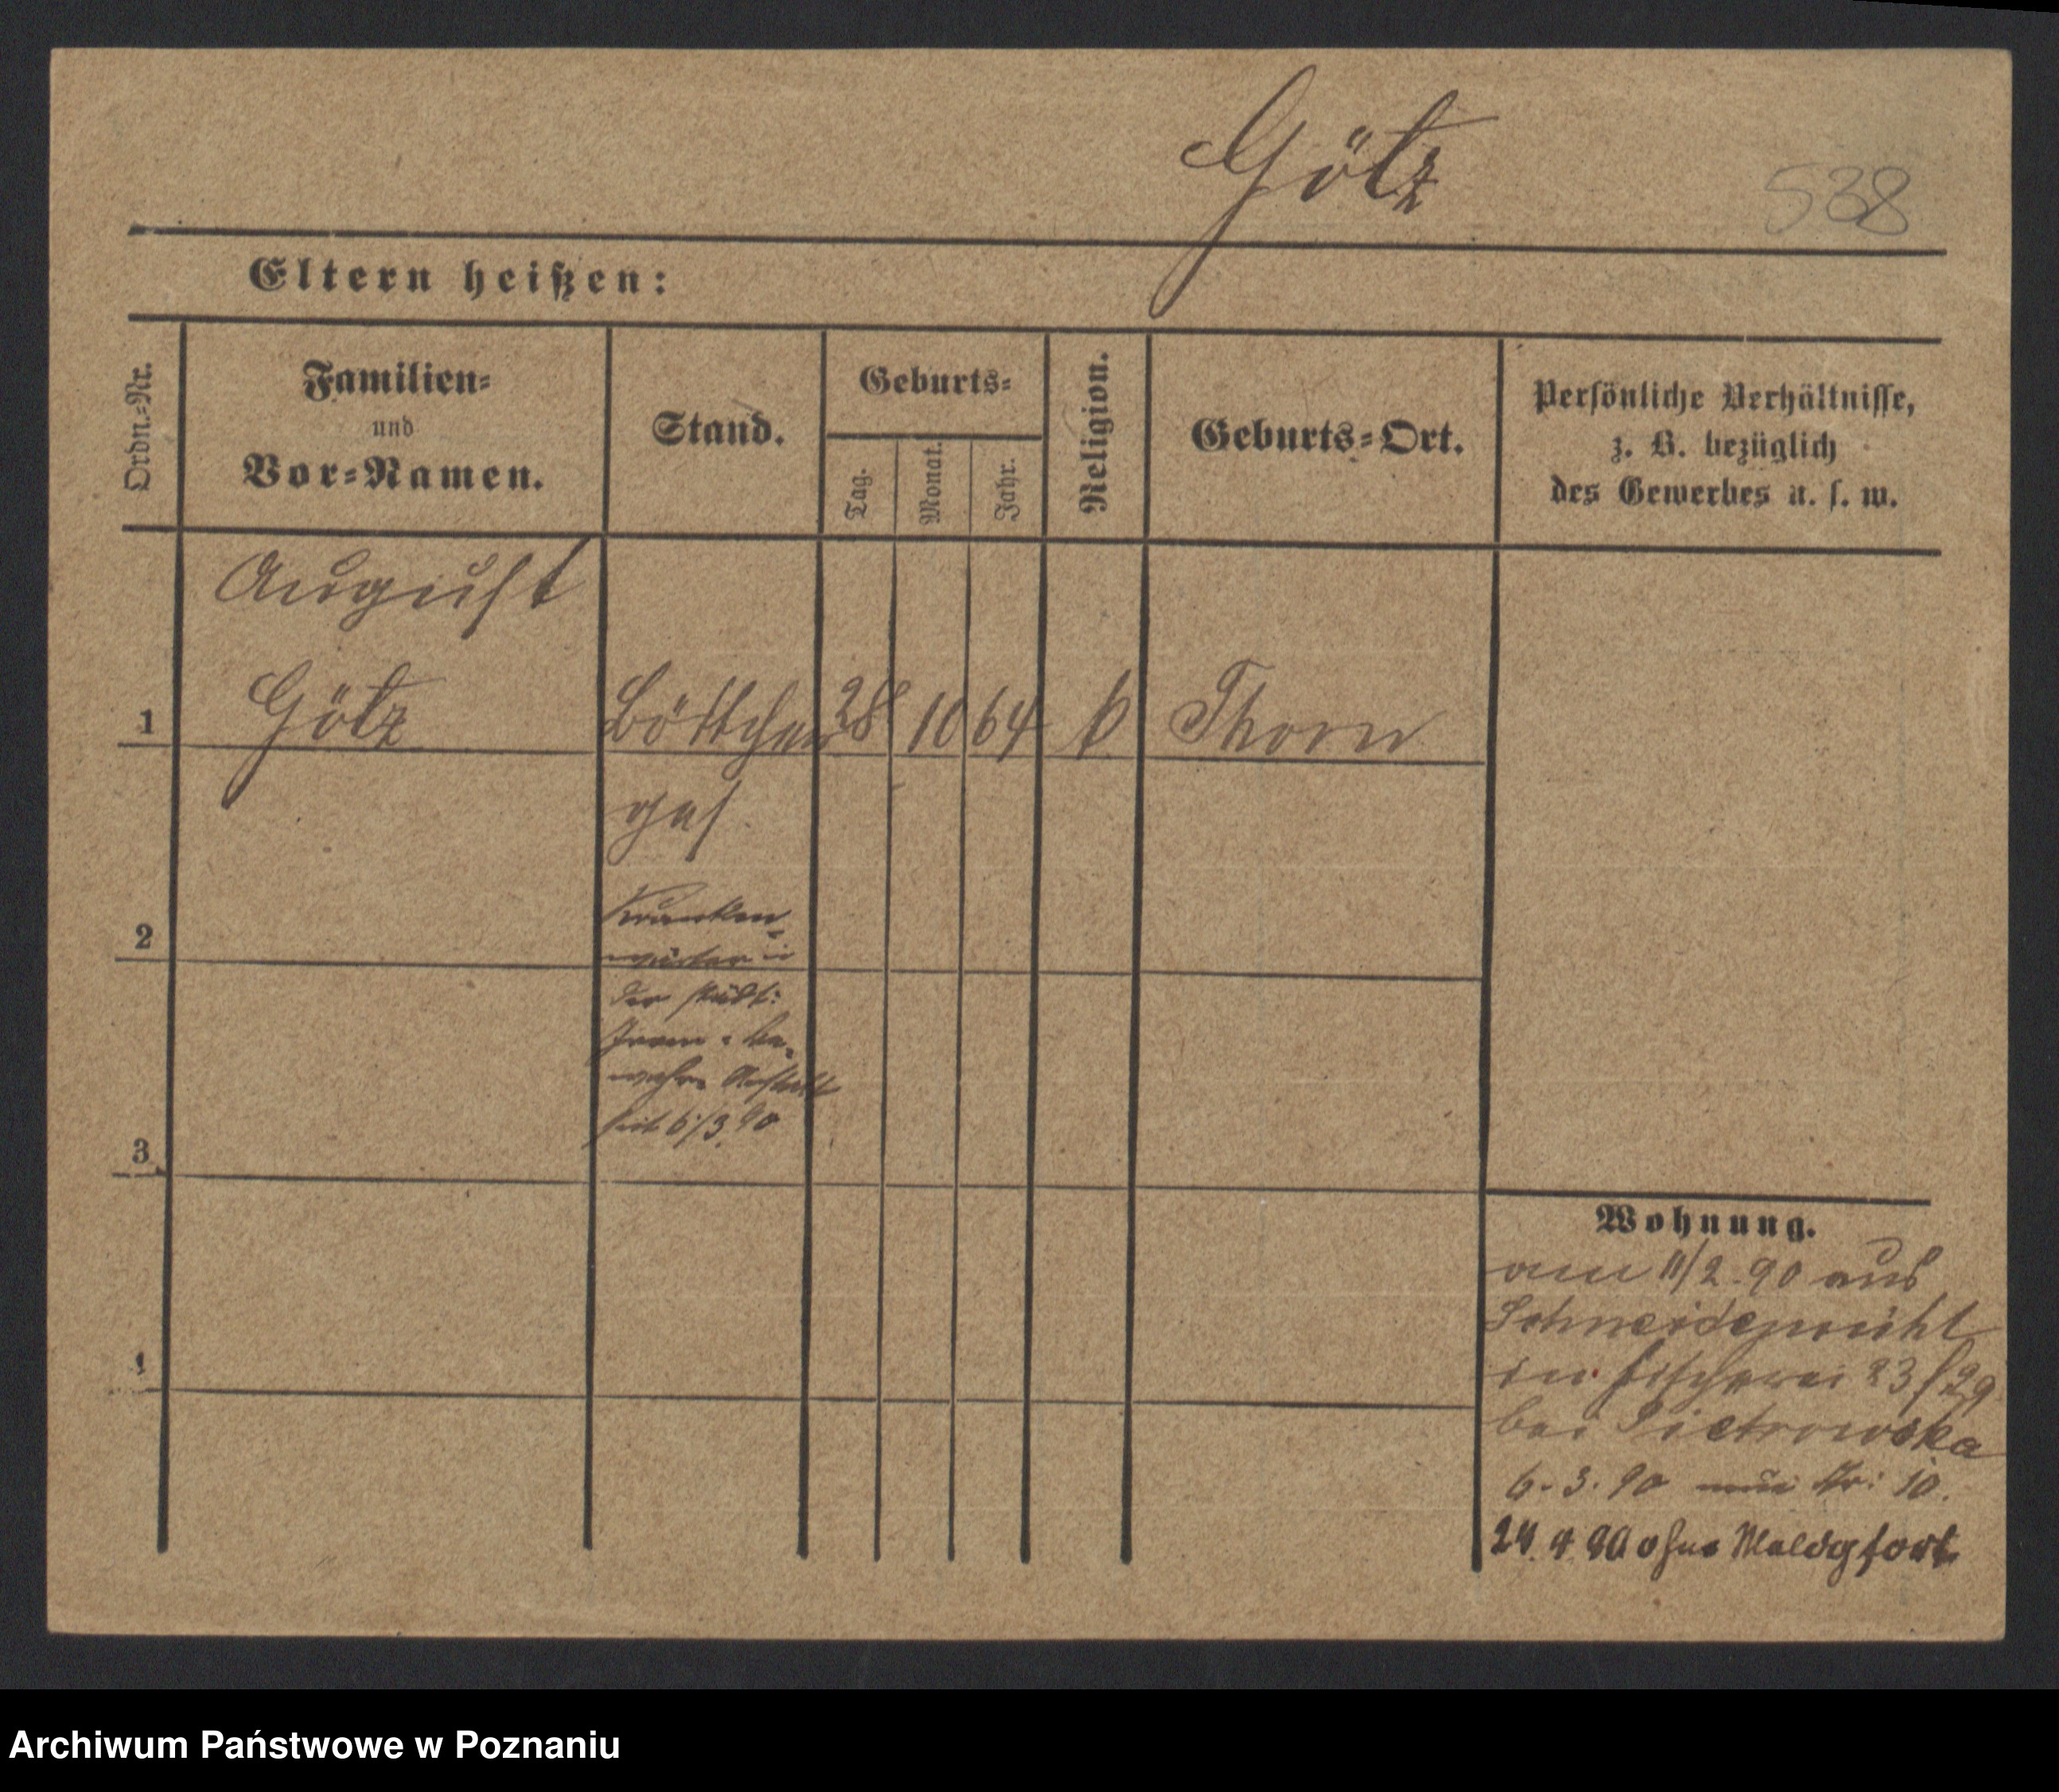 Götz
538
Eltern heißen:
Ordn.=Nr.
Familien=
und
Vor=Namen.
Stand.
Geburts=
Tag.
Monat.
Jahr.
Religion.
Geburts=Ort.
Persönliche Verhältnisse,
z. B. bezüglich
des Gewerbes u. s. w.
August
1
Götz
Böttcher
28
10
64
k
Thorn
ges
2
Kranken-
wärter i
der städt:
3
Irren = be-
wahr Anstalt
seit 6/3 90
Wohnung.
am 11/2. 90 aus
Schneidemühl
in Fischerei 23/29
bei Pietrowska
6. 3. 90 Nr: 10.
24. 4. 90 ohne Meldg fort
Archiwum Państwowe w Poznaniu